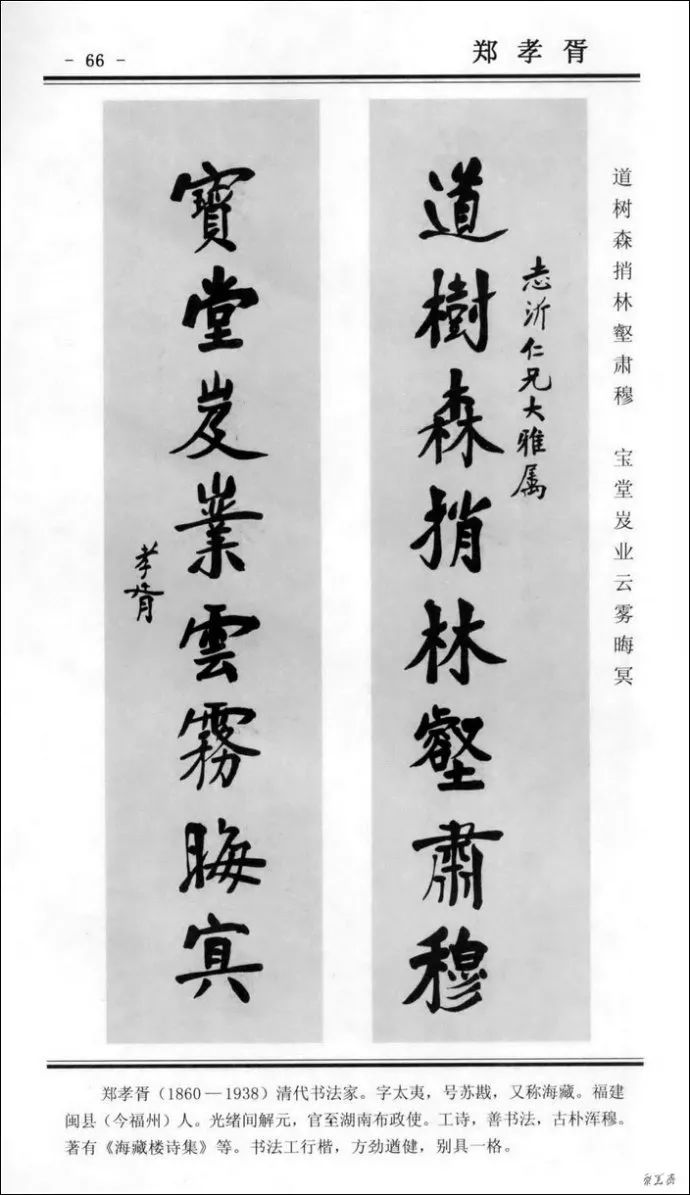 - 66 -
郑孝胥
道树森捎林壑肃穆 宝堂岌业云雾晦冥
道樹森捎林壑肅穆
志沂仁兄大雅属
寶堂岌業雲霧晦冥
孝胥
郑孝胥(1860—1938)清代书法家。字太夷，号苏戡，又称海藏。福建
闽县(今福州)人。光绪间解元，官至湖南布政使。工诗，善书法，古朴浑穆。
著有《海藏楼诗集》等。书法工行楷，方劲遒健，别具一格。